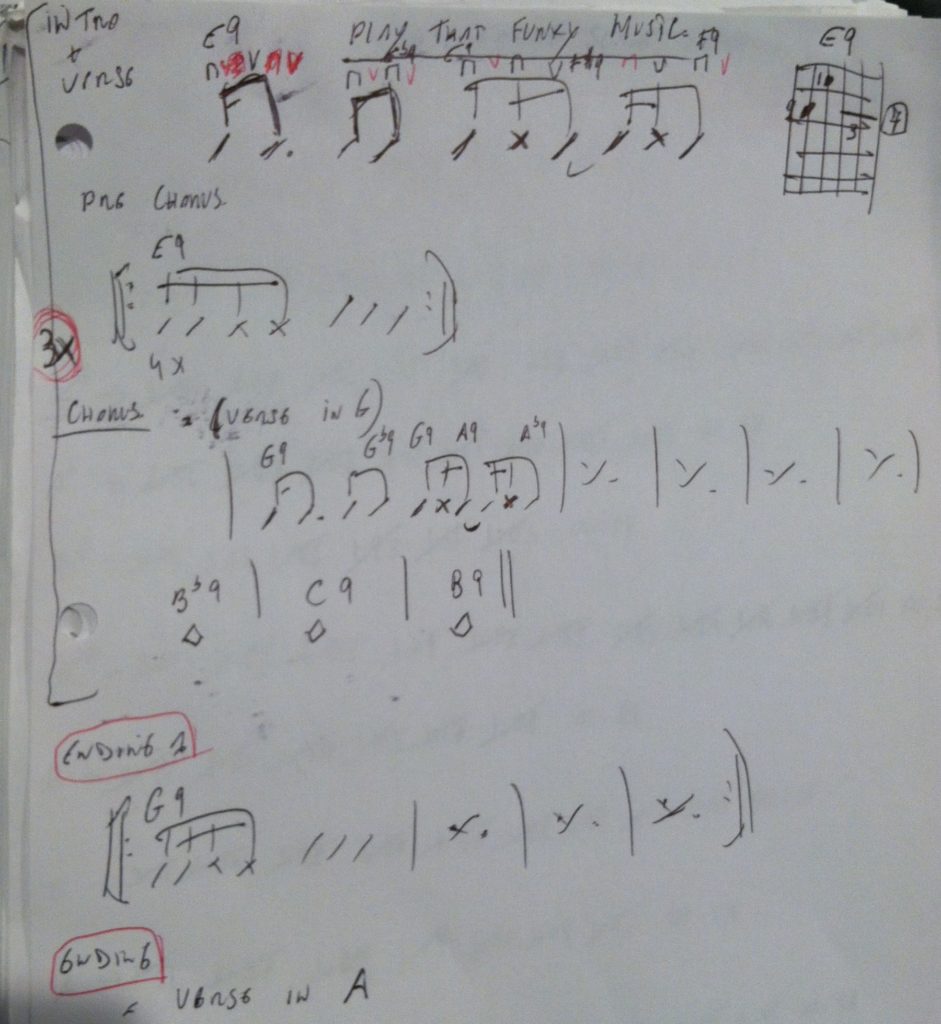 INTRO
+
VERSE
PLAY THAT FUNKY MUSIC
E9 Eb9 E9 F#9 F9
E9
4
PRE CHORUS
E9
4X
3X
CHORUS = (VERSE IN G)
G9 Gb9 G9 A9 Ab9
Bb9 C9 B9
ENDING 1
G9
ENDING
= VERSE IN A